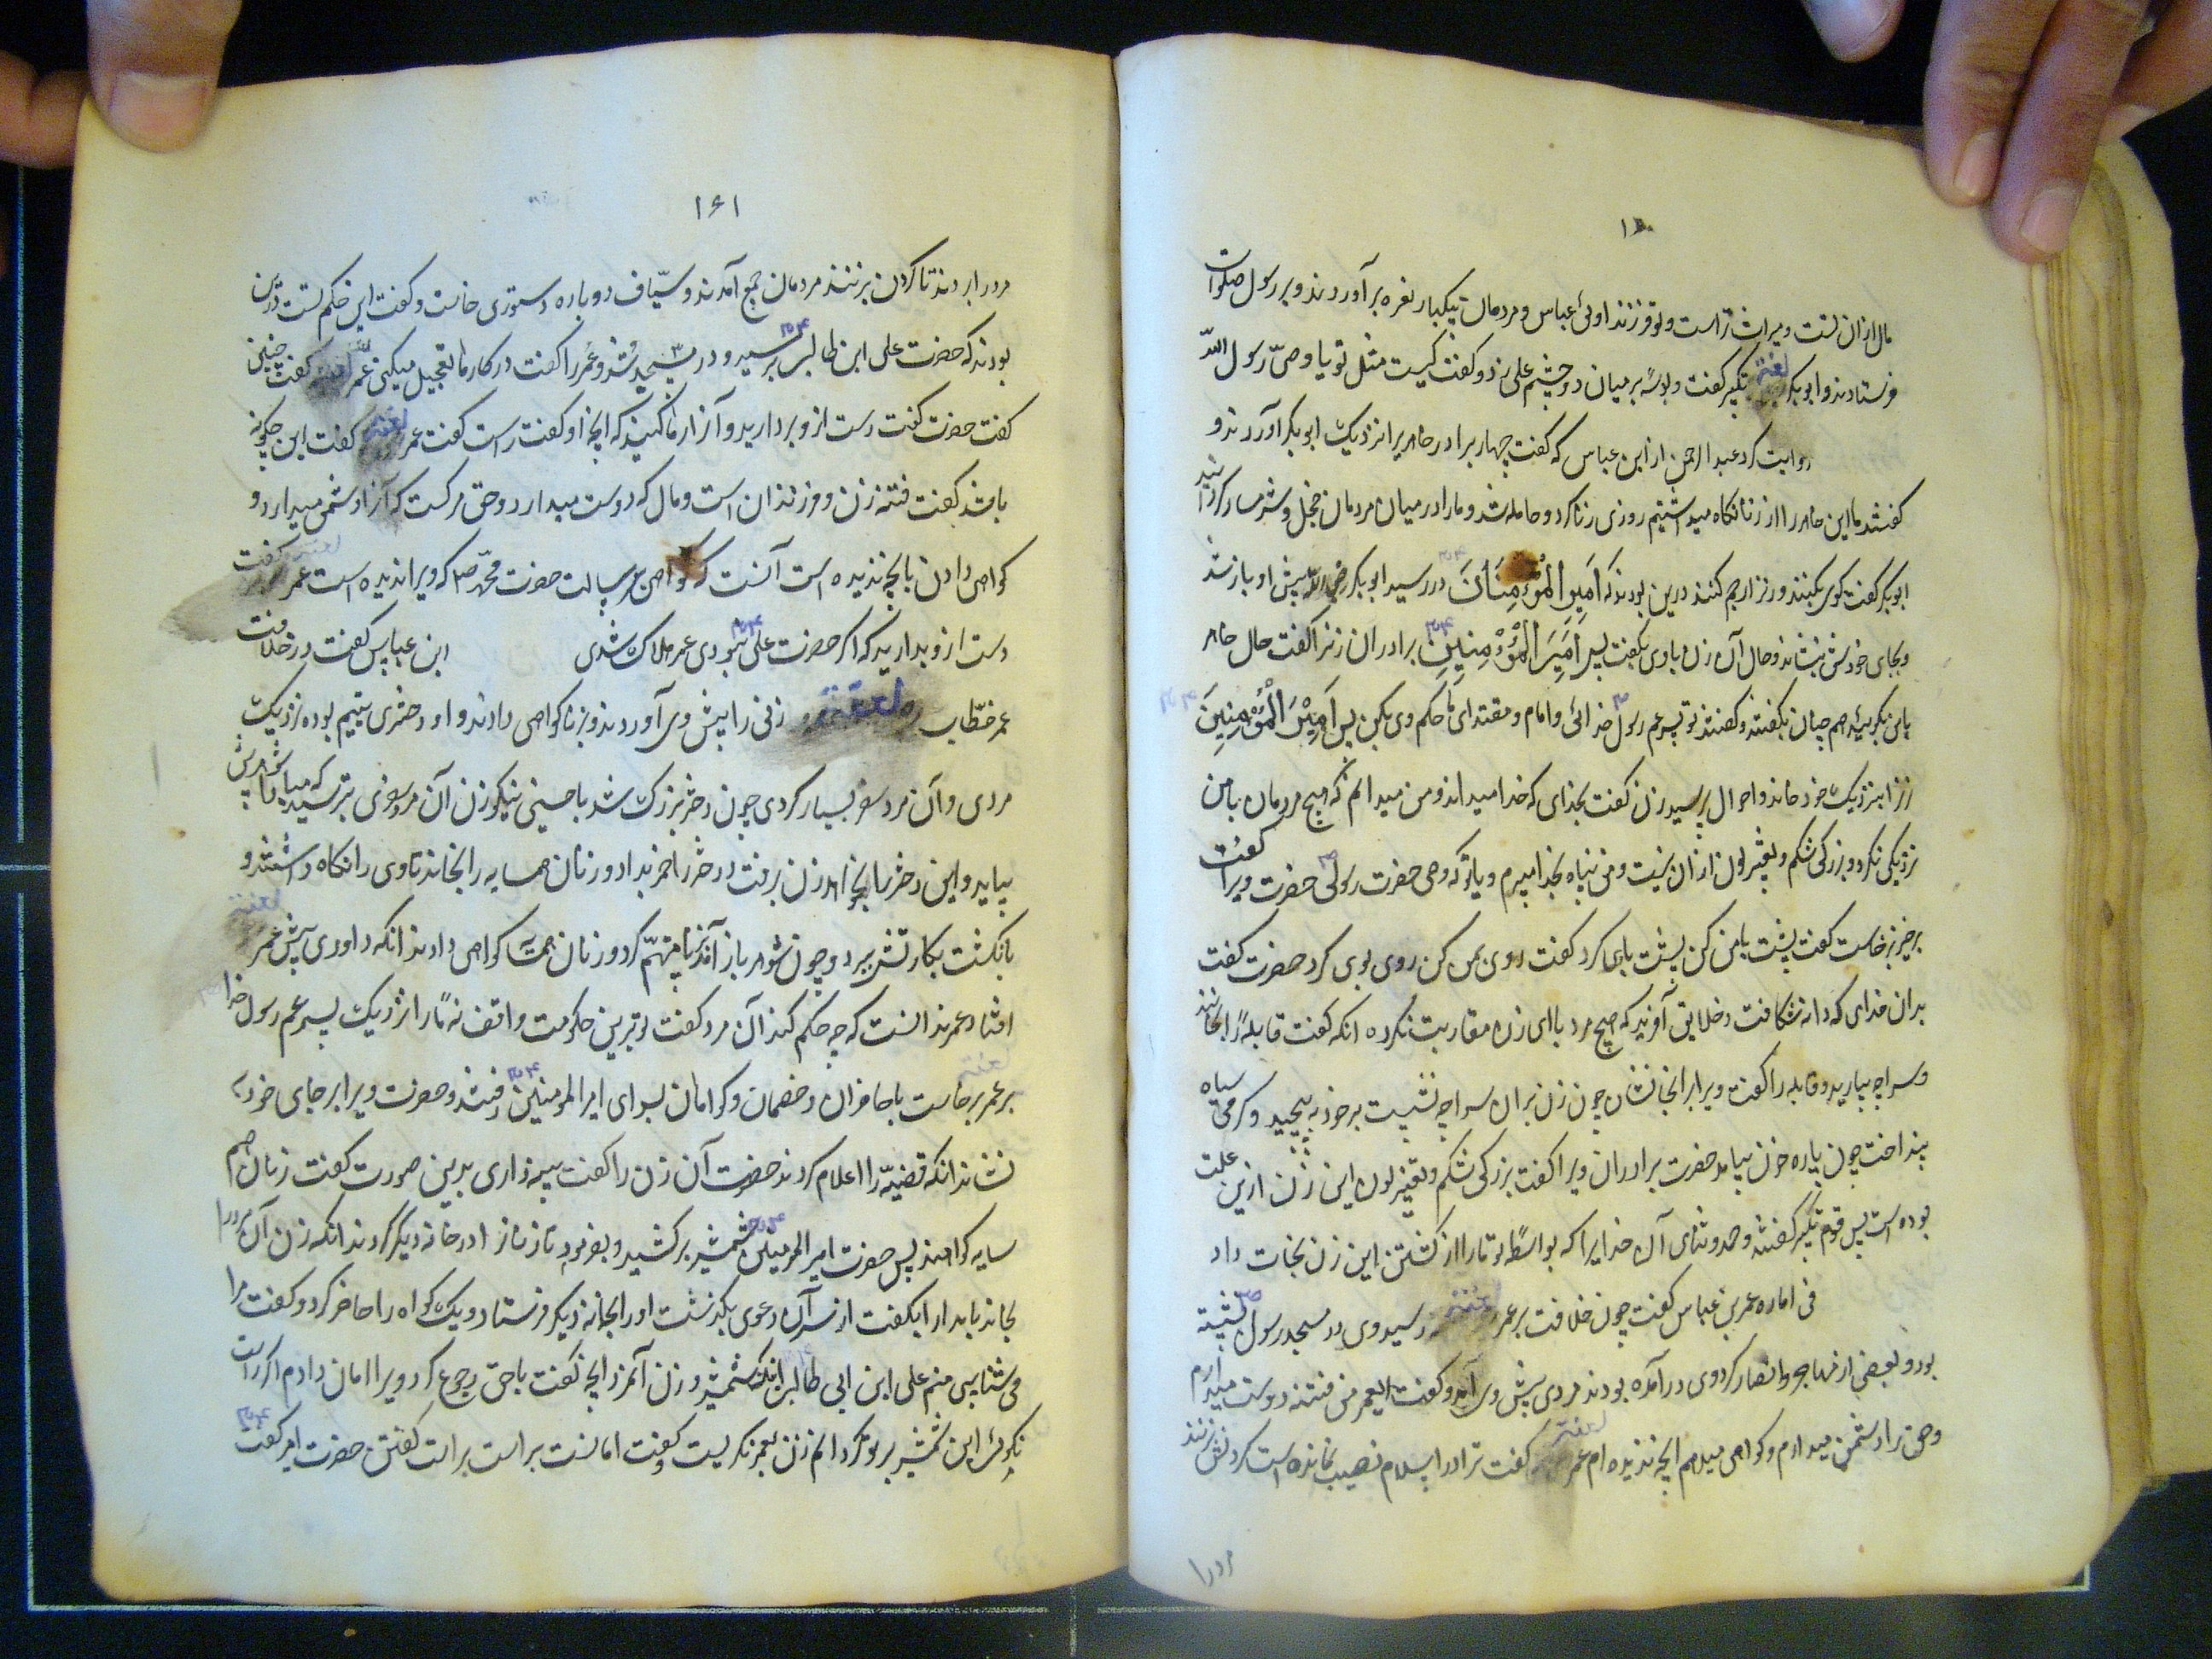 ۱۶۰
مال ازان تست و میراث تراست و تو فرزند اوئی عباس و مردمان بیکبار نعره برآوردند و بر رسول صلوات
فرستادند و ابوبکر لعنة تکبیر گفت و بوسه بر میان دو چشم علی زد و گفت کیست مثل تو یا وصیّ رسول اللّه
روایت کرد عبد الرحمن از ابن عباس که گفت چهار برادر خواهر برا نزدیک ابوبکر آوردند و
گفتند ما این خواهر را از زنا نگاه میداشتیم روزی زنا کرد و حامله شد و ما را در میان مردمان خجل و شرمسار گردانید
ابوبکر گفت گوی بکنند و زنرا رجم کنند درین بودند که امیر المؤمنان در رسید ابوبکر پیش او باز شد
و بجای خودش بنشاند و حال آن زن باوی بگفت پس امیر المؤمنین برادران زنرا گفت حال خواهر
بامن بگوئید هم چنان بگفتند و گفتند تو پسر عم رسول خدائی و امام و مقتدای ما حکم وی بکن پس امیر المؤمنین
زنرا بنزدیک خود خواند و احوال پرسید زن گفت بخدای که خدا میداند و من میدانم که هیچ مردمان با من
نزدیکی نکرد و بزرگی شکم و تغیّر لون از آن نیست و من پناه بخدا میبرم و با تو که وصی حضرت رسولی حضرت ویرا گفت
برخیز برخاست گفت پشت با من کن پشت باوی کرد گفت روی بمن کن روی بوی کرد حضرت گفت
بدان خدای که دانه شکافت و خلایق آفرید که هیچ مرد با این زن مقاربت نکرده انکه گفت قابله را بخوانند
و سراچه بیارید و قابله را گفت ویرا بر انجا نشان چون زن بران سراچه نشست برخود به پیچید و کرمی سیاه
بینداخت چون پاره خون بیامد حضرت برادران ویرا گفت بزرگی شکم و تغیّر لون این زن ازین علت
بوده است پس قوم تکبیر گفتند و حمد و ثنای آن خدایرا که بواسطه تو ما را از کشتن این زن نجات داد
فی اماره عمر بن عباس گفت چون خلافت بر عمر لعنة رسید وی در مسجد رسول نشسته
بود و بعضی از مهاجر و انصار گردوی درآمده بودند مردی پیش وی آمد و گفت ایعمر من فتنه دوست میدارم
و حق را دشمن میدارم و گواهی میدهم انچه ندیده ام عمر لعنة گفت ترا در اسلام نصیب نمانده است گردنش بزنند
مرد را
۱۶۱
مرد را بردند تا گردن بزنند مردمان جمع آمدند و سیّاف دوباره دستوری خواست و گفت این حکم تست درین
بودند که حضرت علی ابن طالب برسید و در مسجد شد و عمر را گفت در کارها تعجیل میکنی عمر لعنه گفت چنین
گفت حضرت گفت دست از و بردارید و آزار ما کنید که انچه او گفت راست گفت عمر لعنة گفت این چگونه
باشد گفت فتنه زن و فرزندان است و مال که دوست میدارد و حق مرگست که آنرا دشمن میدارد و
گواهی دادن بانچه ندیده است آنست که گواهی برسالت حضرت محمّد ص که ویرا ندیده است عمر لعنة گفت
دست ازو بدارید که اگر حضرت علی نبودی عمر هلاک شدی ابن عباس گفت در خلافت
عمر خطاب لعنة زنی را پیش وی آوردند و بزنا گواهی دادند و او دختری یتیم بوده نزدیک
مردی و آن مرد سفر بسیار کردی چون دختر بزرگ شد با حسنی نیکو زن آن مرد بترسید که مبادا شوهرش
بیاید و این دختر را بخواهد زن برفت و دختر را خمر بداد و زنان همسایه را بخواند تا وی را نگاه داشتند و
بانگشت بکارتش ببرد و چون شوهر باز آمد بزنا متهمّ کرد و زنان همسایه گواهی دادند انکه داوری پیش عمر لعنة
افتاد عمر ندانست که چه حکم کند آن مرد گفت تو برین حکومت واقف نه مارا نزدیک پسر عم رسول خدا
بر عمر برخاست با حاضران و خصمان و گواهان بسوای امیر المومنین رفتند و حضرت ویرا بر جای خود
نشاند انکه قضیّه را اعلام کردند حضرت آن زن را گفت بینه داری بدین صورت گفت زنان هم
سایه گواهند پس حضرت امیر المومنین شمشیر برکشید و بفرمود تا زنانرا در خانه دیگر کردند انکه زن آن مرد را
بخواند بابدار ایگفت از سر آن دعوی بگذشت او را بخانه دیگر فرستاد و یک گواه را حاضر کرد و گفت مرا
می شناسی منم علی ابن ابی طالب اینک شمشیر و زن آنمرد انچه گفت باحق رجوع کرد ویرا امان دادم اگر راست
نگوئی این شمشیر بر تو گردانم زن بعمر نگریست و گفت امانست براست براست گفتن حضرت امیر گفت